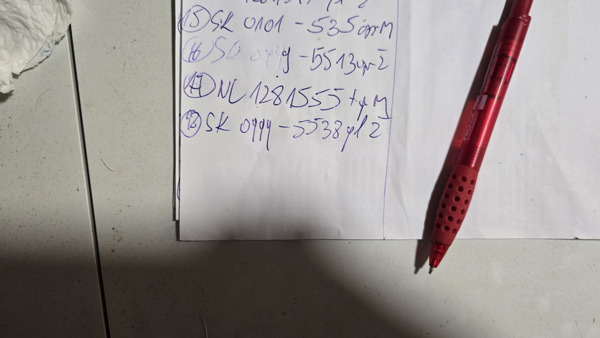 15 SK 0101 - 535 qrrM
16 SK 0999 - 5513 yrŽ
17 NL 1281555 tyM
18 SK 0999 - 5538 yl Ž